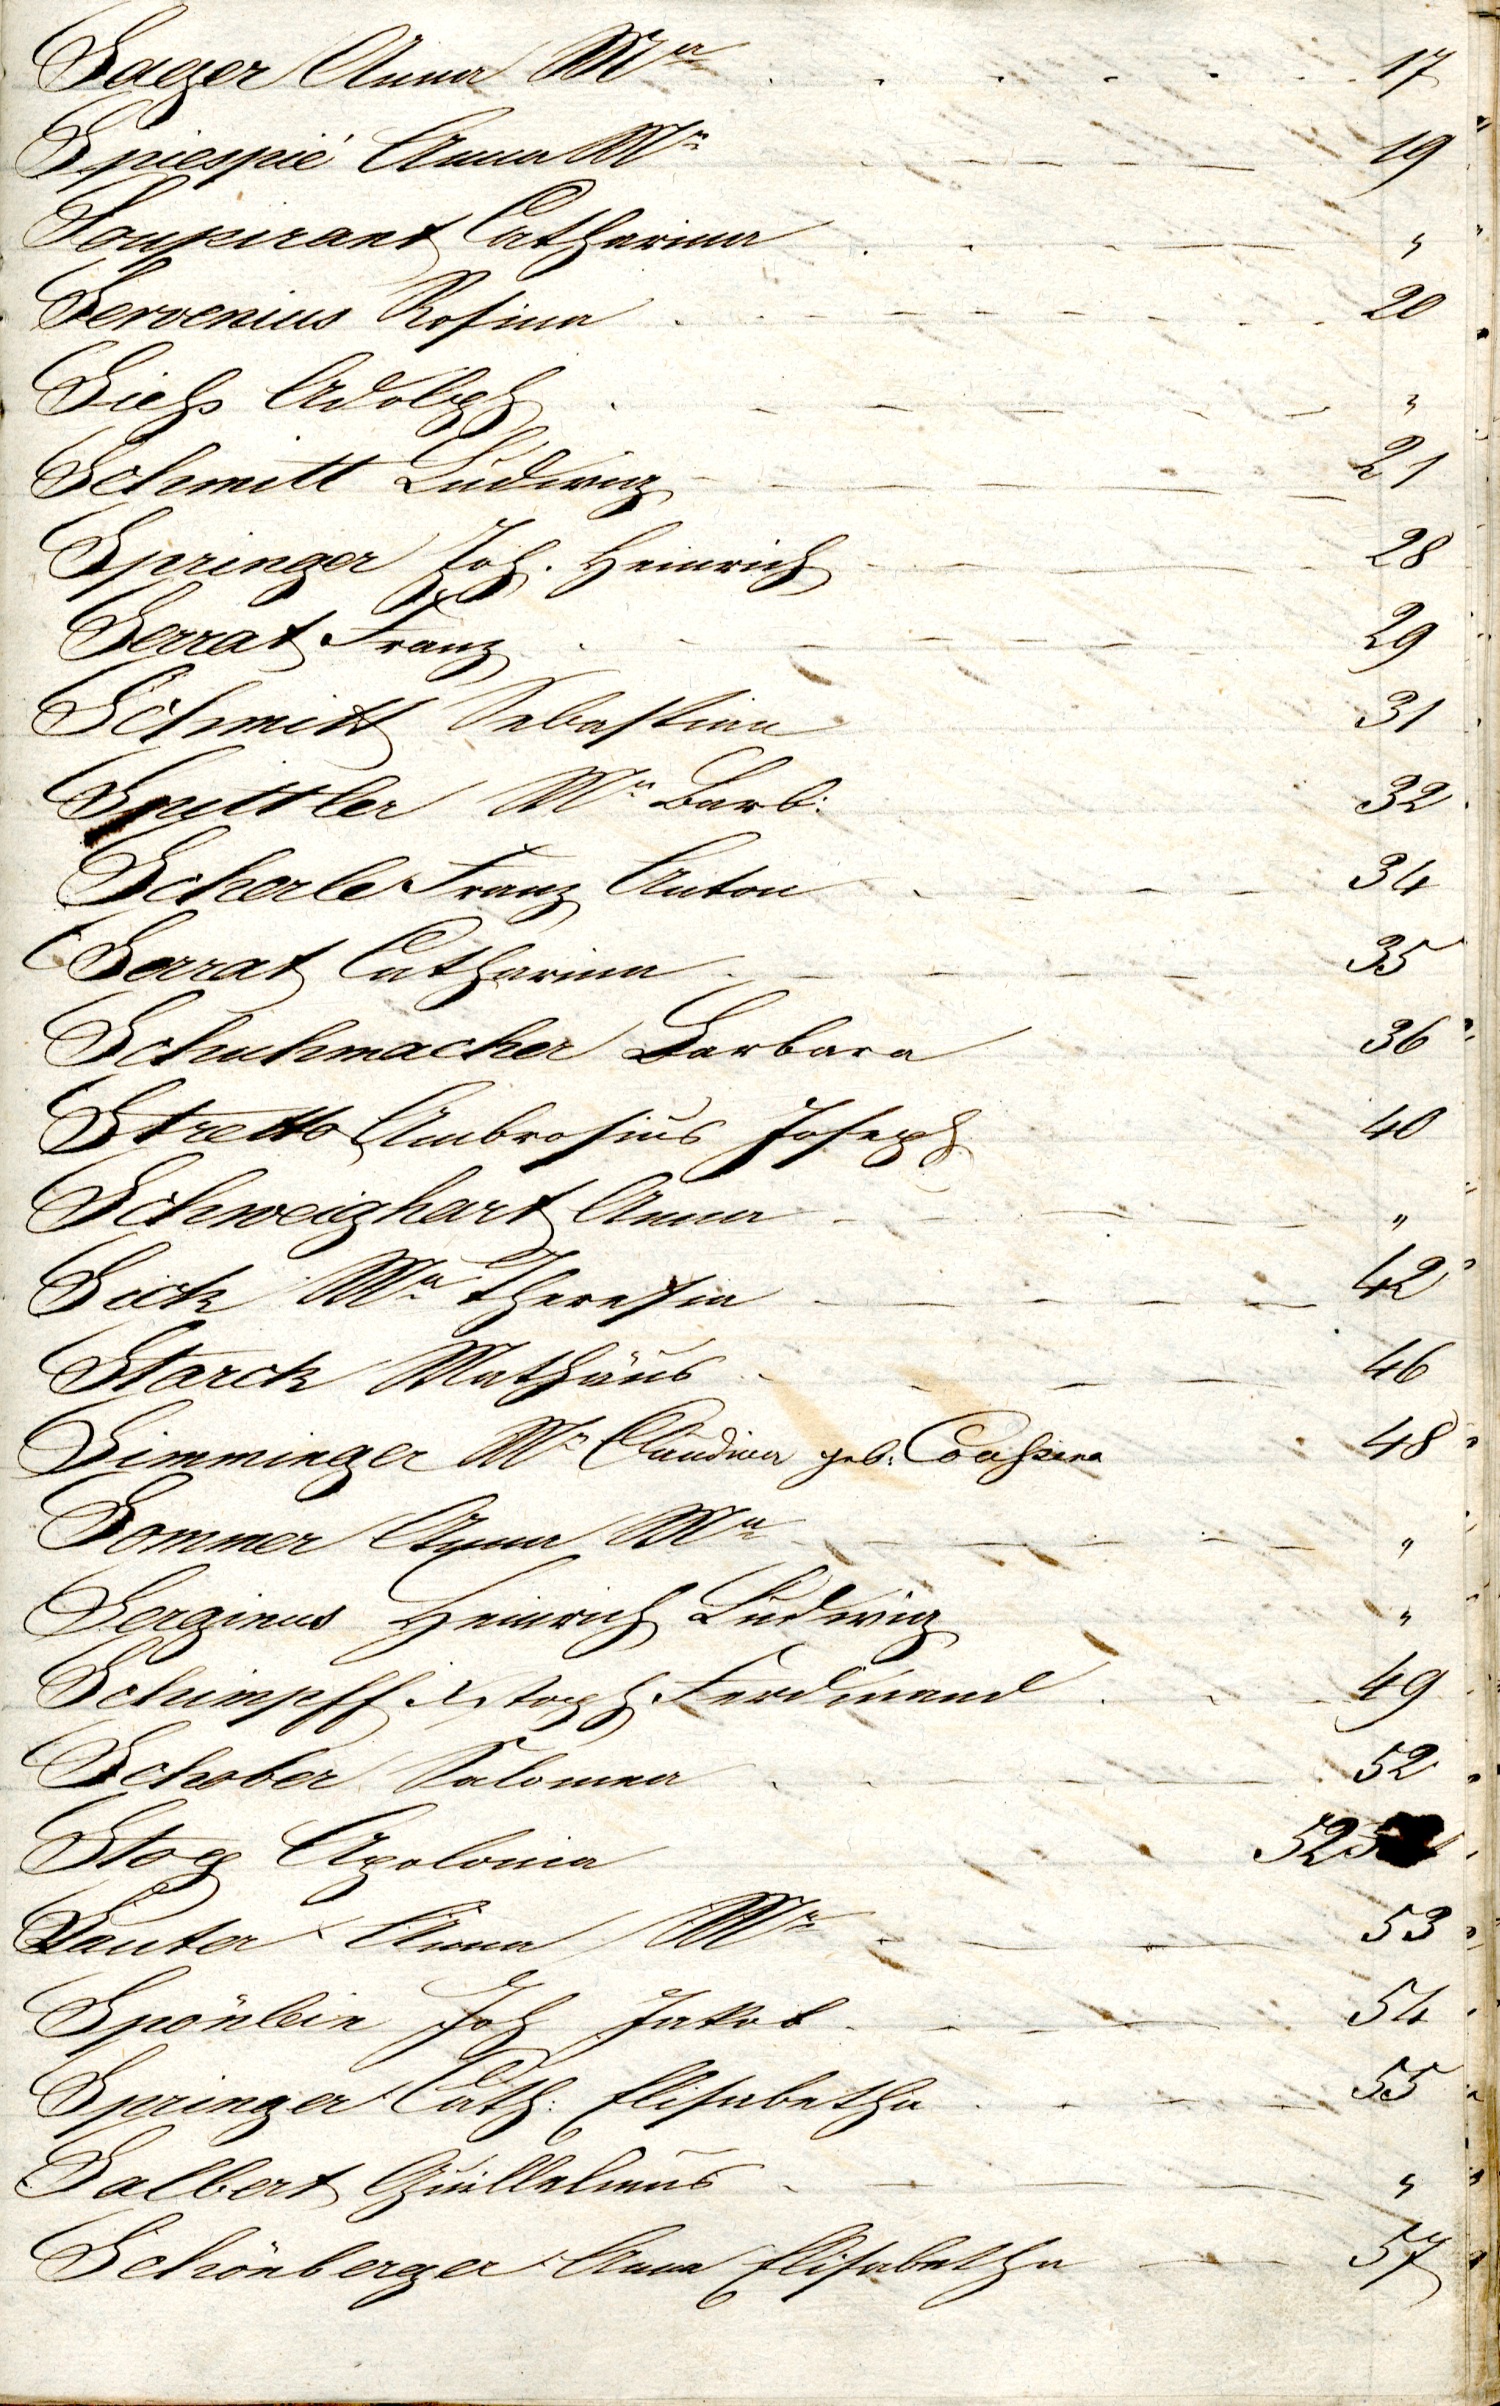 Sager Anna Mª 17
Spiespié Anna Mª 19
Soupirant Catharina "
Servenius Rosina 20
Siehs Adolph "
Schmitt Ludwig 21
Springer Joh. Heinrich 28
Serrat Franz 29
Schmitt Sebastian 31
Spittler Mª Barb: 32
Scherle Franz Anton 34
Serrat Catharina 35
Schuhmacher Barbara 36
Stretto Ambrosius Joseph 40
Schweighart Anna "
Sick Mª Theresia 42
Starck Mathäus 46
Simminger Mª Claudina geb: 48
Sommer Anna Mª "
Serginus Heinrich Ludwig "
Schimpff Xstoph Ferdinand 49
Schober Salomea 52
Stog Apolonia 52
Sauter Anna Mª 53
Spönlein Joh Jakob 54
Springer Cath: Elisabetha 55
Salbert Guillelmus "
Schönberger Anna Elisabetha 57